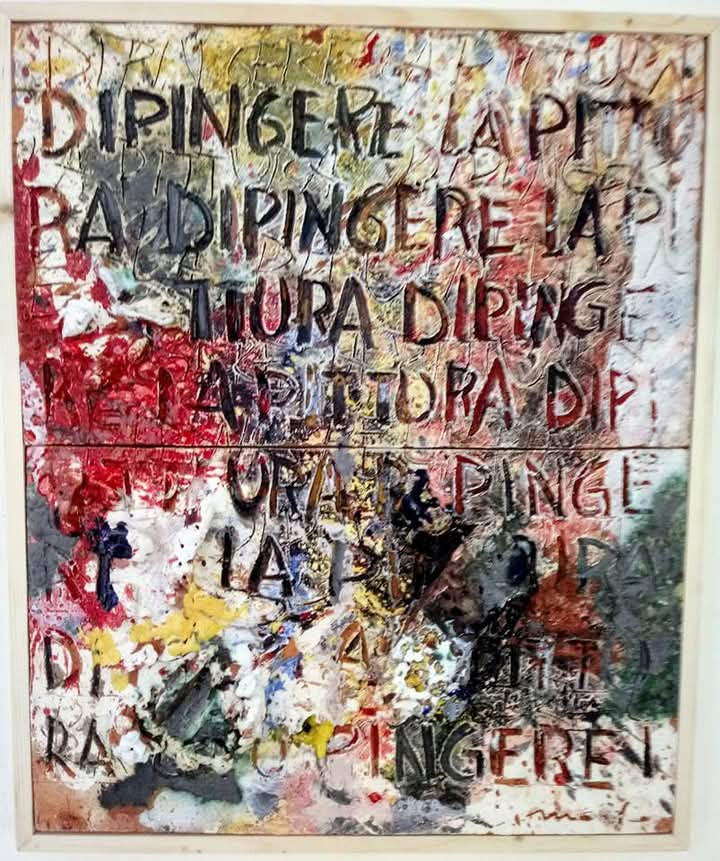 DIPINGERE LA PITTU
RA DIPINGERE LA PI
TTURA DIPINGE
RE LA PITTURA DIPI
URA DIPINGE
RE LA PITTURA
DI LA PITTU
RA DIPINGERE